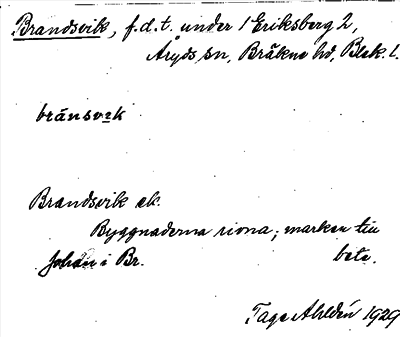 Brandsvik, f.d.t. under 1 Eriksberg 2,
Åryds sn, Bräkne hd, Blek. l.
bränsvɩk
Brandsvik ek.
Byggnaderna rivna; marken till
Johan i Br. bete.
Tage Ahldén 1929